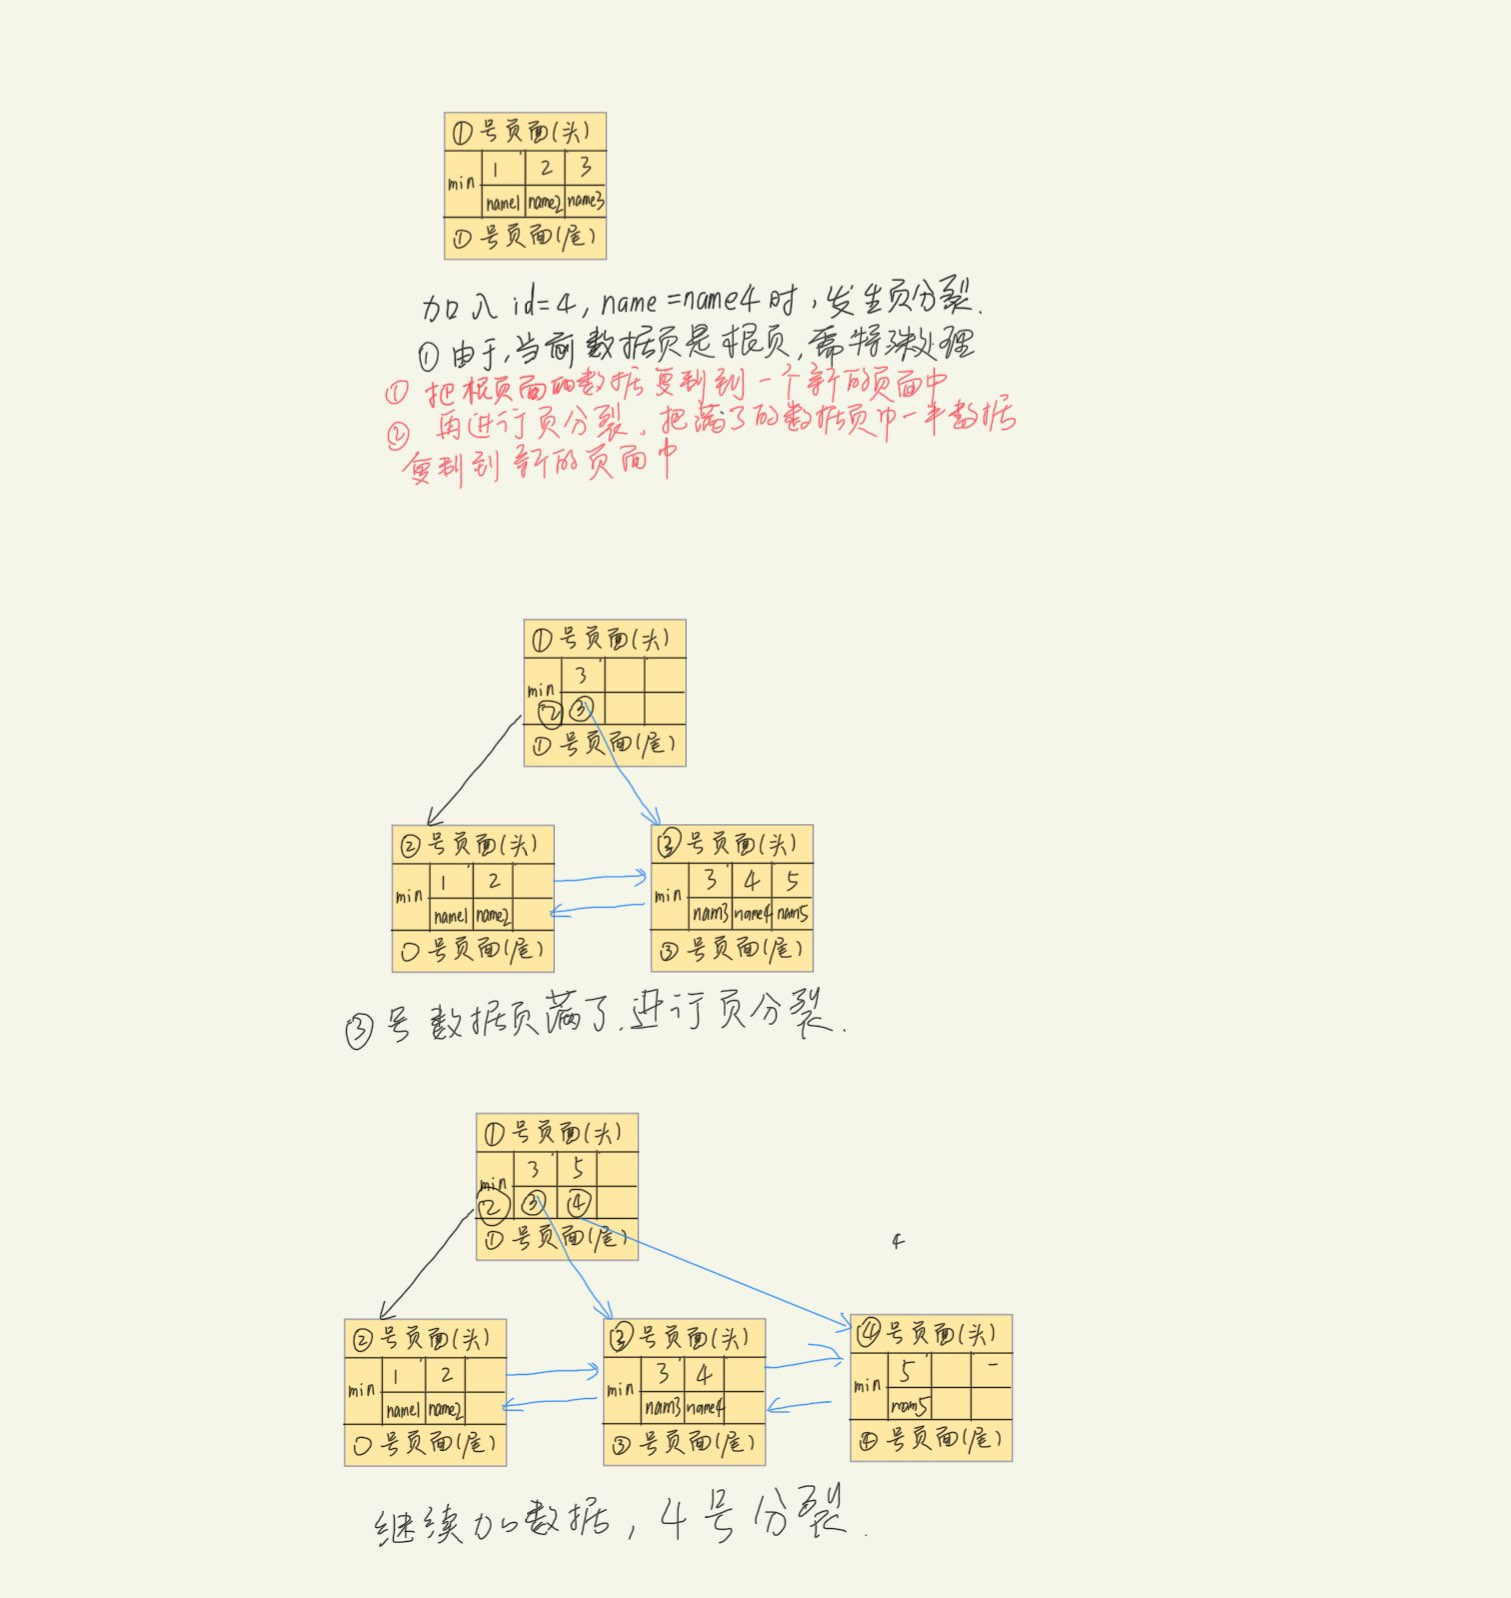 ①号页面(头)
min 1 2 3
name1 name2 name3
①号页面(尾)
加入 id=4, name=name4时,发生页分裂.
①由于,当前数据页是根页,需特殊处理
① 把根页面的数据复制到一个新的页面中
② 再进行页分裂.把满了的数据页中一半数据
复制到新的页面中
①号页面(头)
min 3
② ③
①号页面(尾)
②号页面(头)
min 1 2
name1 name2
号页面(尾)
③号页面(头)
min 3 4 5
nam3 name4 nam5
③号页面(尾)
③号数据页满了.进行页分裂.
①号页面(头)
min 3 5
② ③ ④
①号页面(尾)
4
②号页面(头)
min 1 2
name1 name2
号页面(尾)
③号页面(头)
min 3 4
nam3 name4
③号页面(尾)
④号页面(头)
min 5 -
nam5
④号页面(尾)
继续加数据,4号分裂.